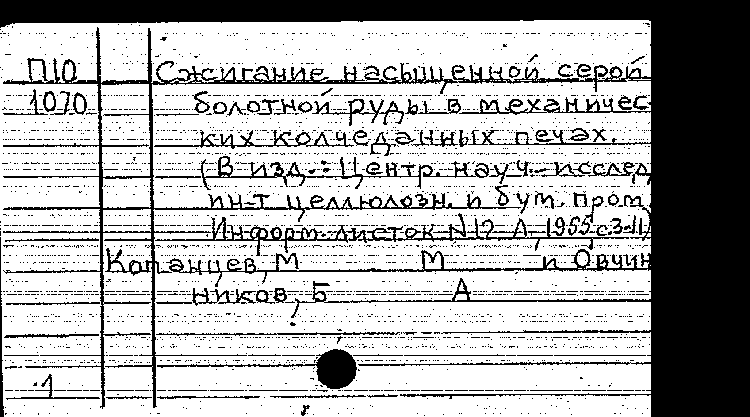 П10 Сжигание насыщенной серой
1070 болотной руды в механичес-
ких колчеданных печах.
(В изд.: Центр. науч.-исслед
ин-т целлюлозн. и бум. пром.
Информ. листок N12 Л, 1955, с.3-11)
Копанцев, М М и Овчин
ников, Б А
1